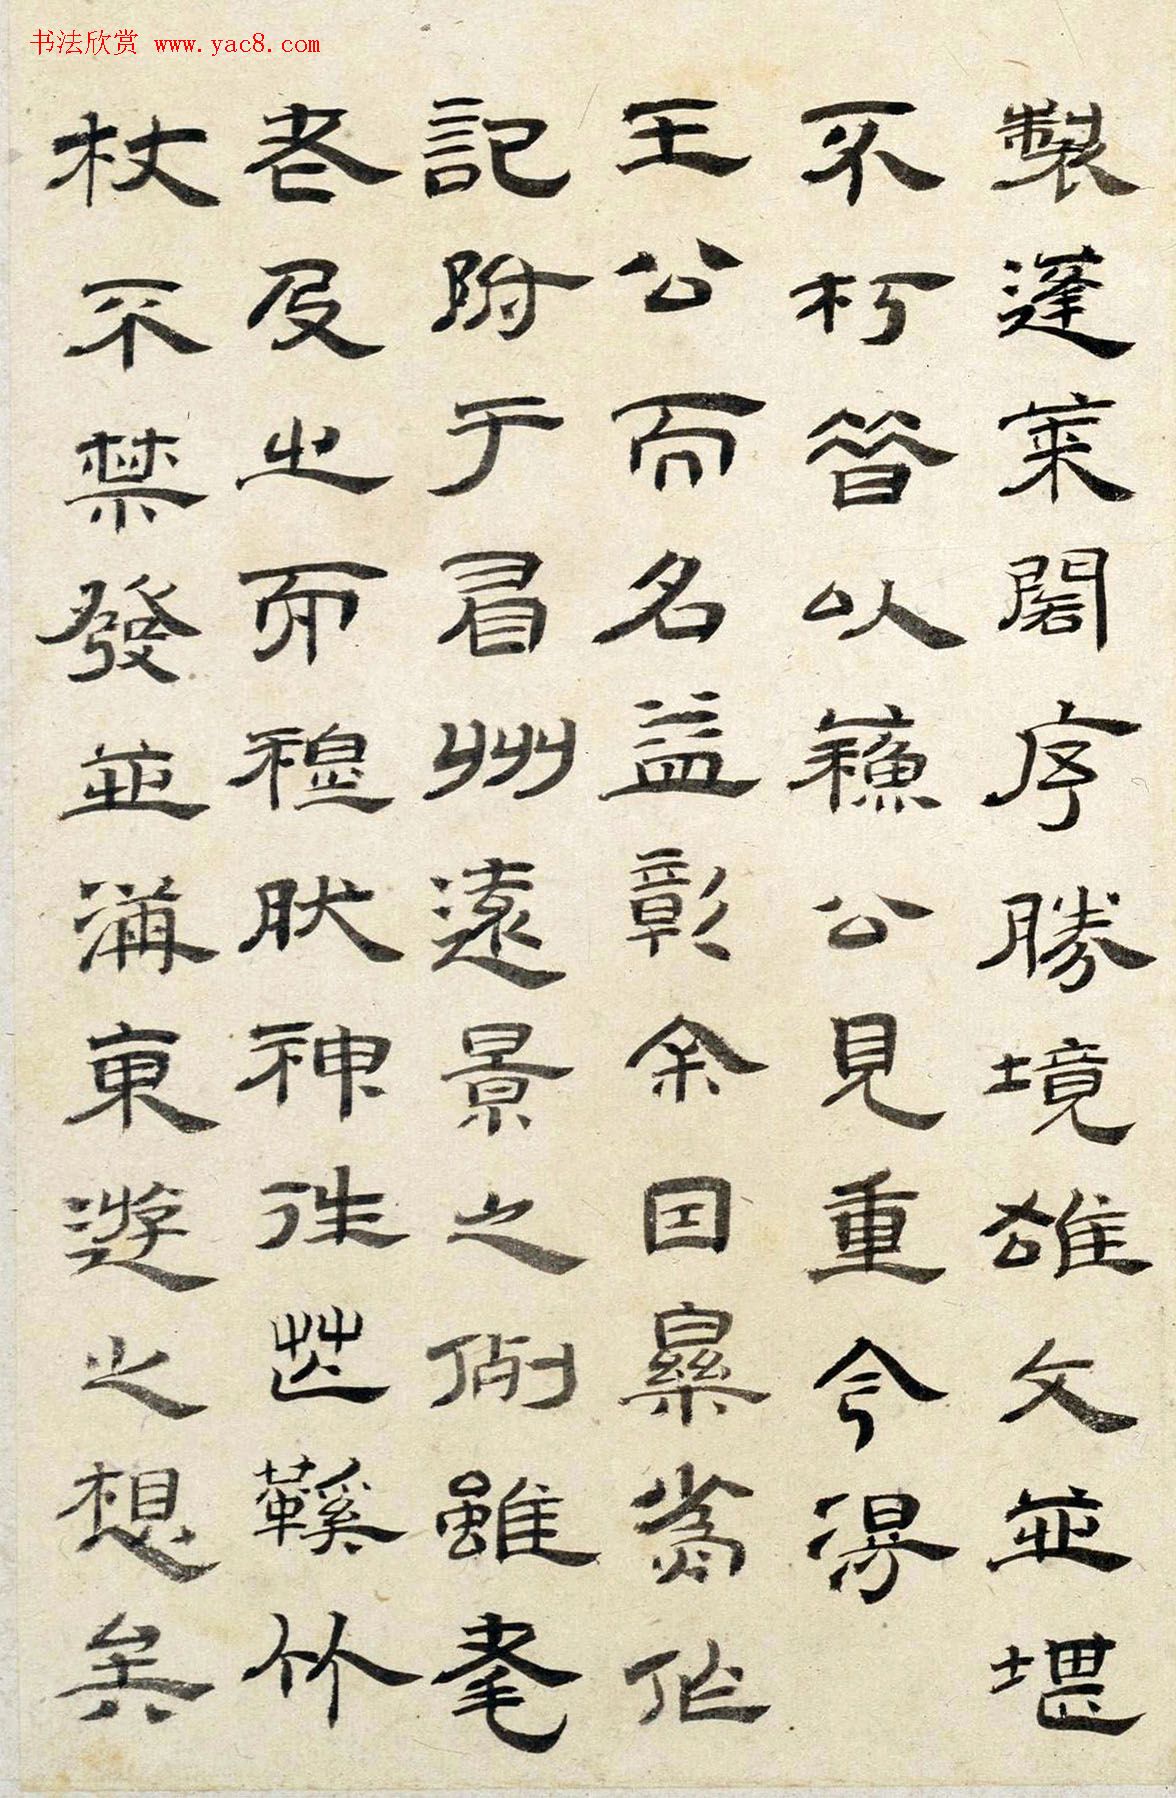 书法欣赏 www.yac8.com
製蓬萊閣序勝境雄文並堪
不朽昔以蘓公見重今得
王公而名益彰余囙樂為作
記附于眉州遠景之例雖耄
老及之而穆肰神往芒鞵竹
杖不禁發並海東遊之想矣